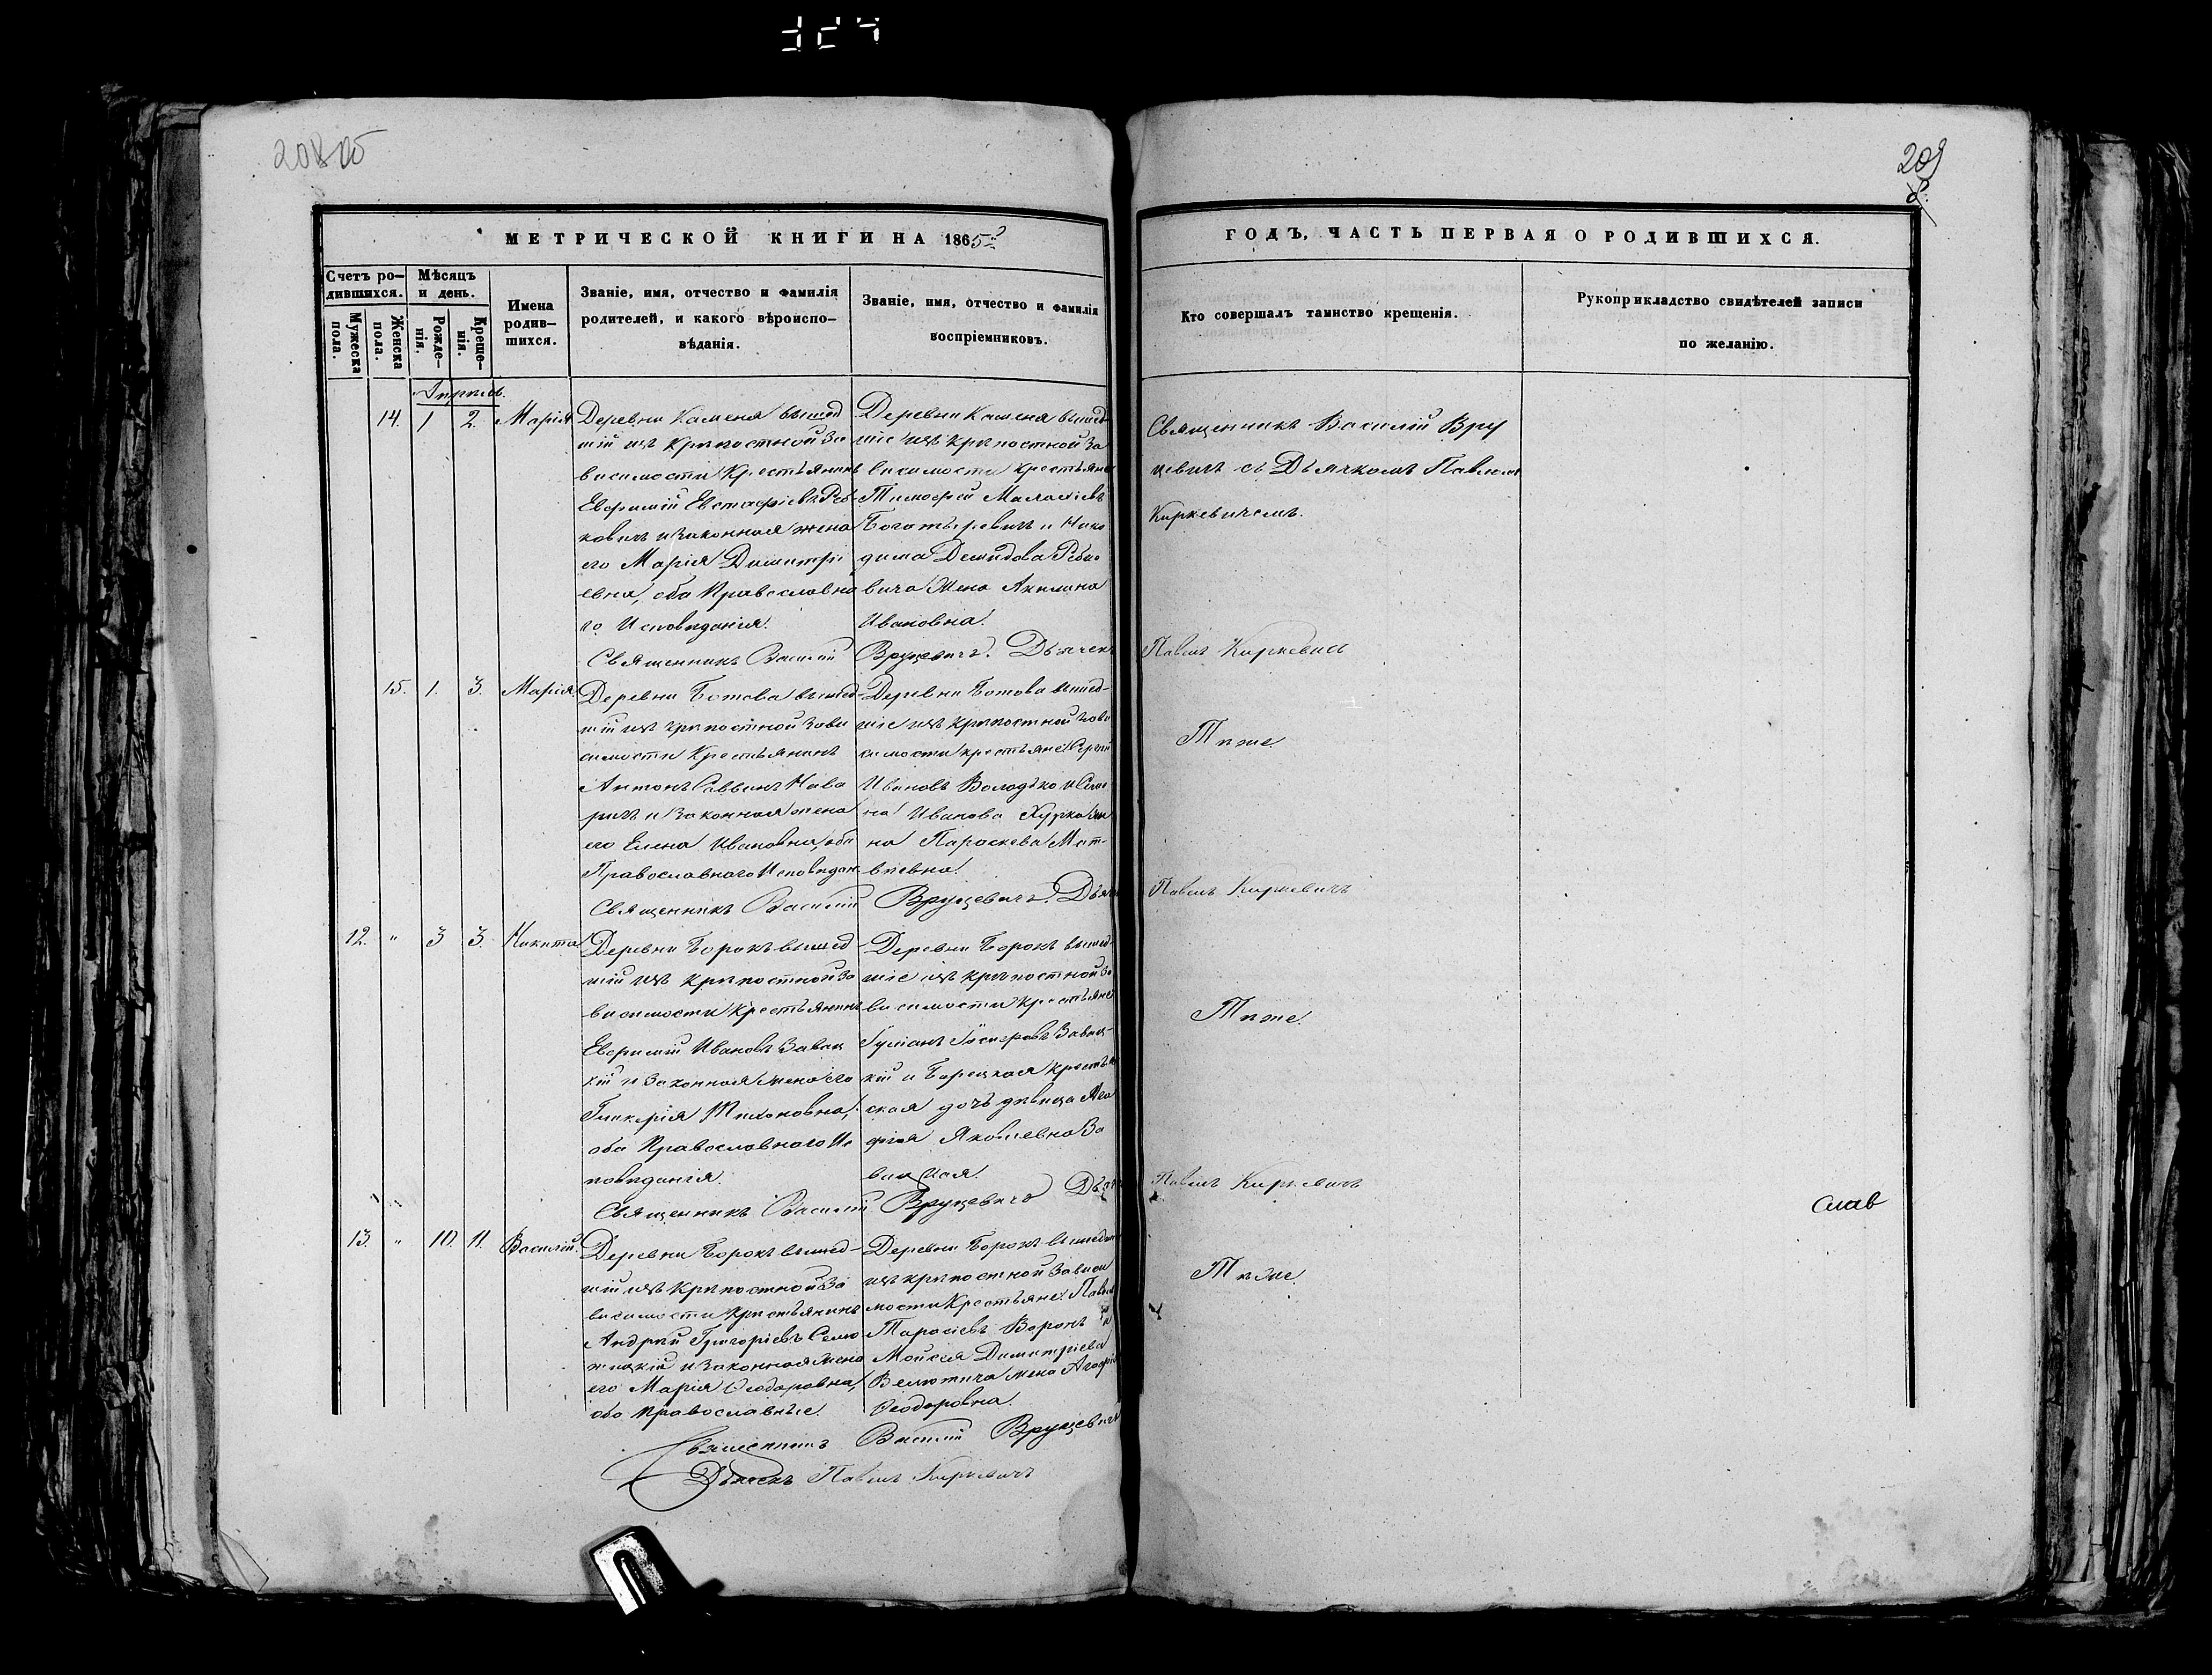 208об
209
МЕТРИЧЕСКОЙ КНИГИ НА 1865й
ГОДЪ, ЧАСТЬ ПЕРВАЯ О РОДИВШИХСЯ.
Счетъ ро-
дившихся.
Мужеска пола.
Женска пола.
Мѣсяцъ
и день.
Рожде-
нія.
Креще-
нія.
Имена
родив-
шихся.
Званіе, имя, отчество и фамилія
родителей, и какого вѣроиспо-
вѣданія.
Званіе, имя, отчество и фамилія
воспріемниковъ.
Кто совершалъ таинство крещенія.
Рукоприкладство свидѣтелей записи
по желанію.
Апрѣль.
14. 1 2. Марія
Деревни Каменя вышед
шій изъ крѣпостной за
висимости крестьянинъ
Евфимій Евстафіевъ
ковичъ и законная жена
его Марія Димитрі
евна, оба Православна
го Исповѣданія.
Деревни Каменя вышед
шіе изъ крѣпостной за
висимости крестьяне
Тимофей Малахіевъ
Богатыревичъ и Нико
дима Демидова
вича жена Акилина
Ивановна.
Священникъ Василій Вру
цевичъ съ Дьячкомъ Павломъ
Киркевичемъ.
Священникъ Василій Вруцевичъ. Дьячекъ Павелъ Киркевичъ
15. 1. 3. Марія.
Деревни Ботова вышед
шій изъ крѣпостной зави
симости крестьянинъ
Антонъ Саввинъ Нава
ричъ и законная жена
его Елена Ивановна, оба
Православнаго Исповѣдан.
Деревни Ботова вышед-
шіе изъ крѣпостной зави
симости крестьяне Сергій
Ивановъ Володько и
на Иванова Хурса
на Параскева Мат-
вѣевна.
Тѣже.
Священникъ Василій Вруцевичъ. Дьяч Павелъ Киркевичъ
12. " 3 3. Никита
Деревни Борокъ вышед
шій изъ крѣпостной за
висимости крестьянинъ
Евфимій Ивановъ Завац
кій и законная жена его
Гликерія Тихоновна,
оба Православнаго Ис
повѣданія.
Деревни Борокъ вышед-
шіе изъ крѣпостной за
висимости крестьяне
Іуліанъ Іосифовъ Завац-
кій и Борецкая крестьян
ская дочь дѣвица Ага
фія Яковлевна За
вацкая.
Тѣже.
Священникъ Василій Вруцевичъ Дьяч Павелъ Киркевичъ
13. " 10. 11. Василій.
Деревни Борокъ вышед-
шій изъ крѣпостной за
висимости крестьянинъ
Андрей Григоріевъ
и законная жена
его Марія Ѳеодоровна,
оба православные.
Деревни Борокъ вышедшіе
изъ крѣпостной зависи
мости крестьяне Павелъ
Тарасіевъ Воронъ и
Моисея Димитріева
Велютича жена Агафія
Ѳеодоровна.
Тѣже.
Священникъ Василій Вруцевичъ
Дьячекъ Павелъ Киркевичъ